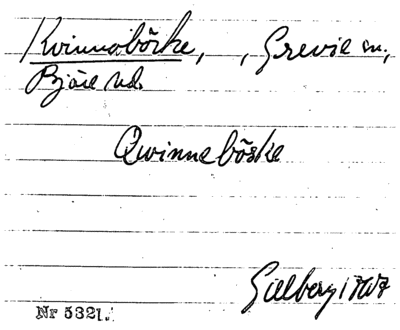 Kvinnaböske, , Grevie sn.,
Bjäre hd.
Qvinneböske
Gillberg 1767
Nr 5321.